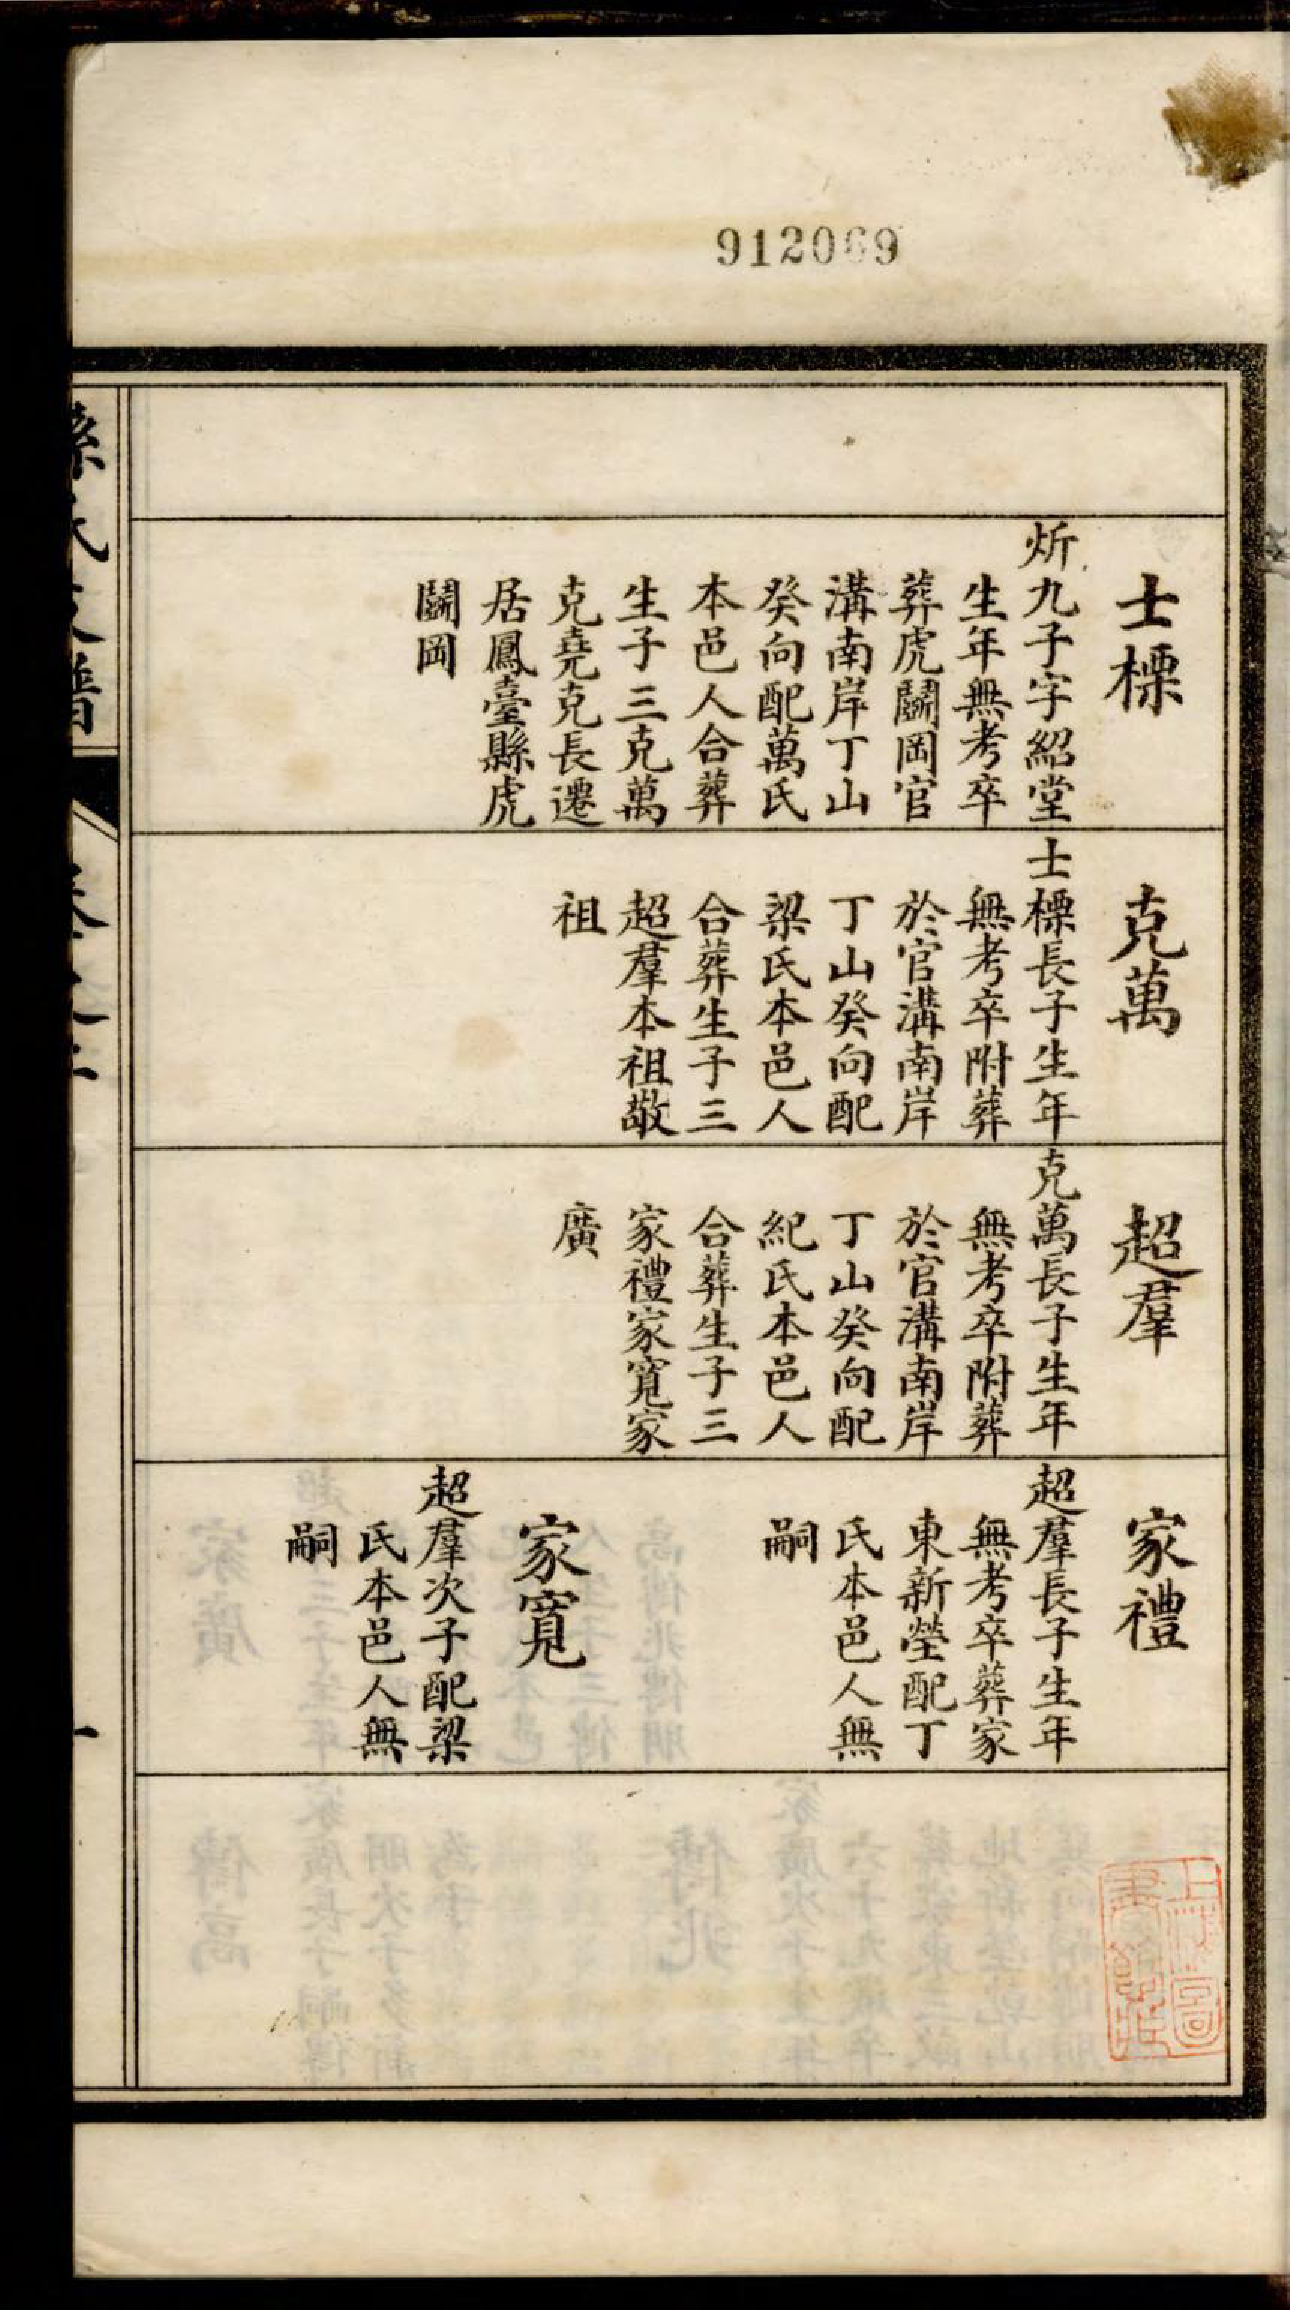 912069
士標
炘九子字紹堂
生年無考卒
葬虎鬭岡官
溝南岸丁山
癸向配萬氏
本邑人合葬
生子三克萬
克堯克長遷
居鳳臺縣虎
鬭岡
克萬
士標長子生年
無考卒附葬
於官溝南岸
丁山癸向配
梁氏本邑人
合葬生子三
超羣本祖敬
祖
超羣
克萬長子生年
無考卒附葬
於官溝南岸
丁山癸向配
紀氏本邑人
合葬生子三
家禮家寬家
廣
家禮
超羣長子生年
無考卒葬家
東新塋配丁
氏本邑人無
嗣
家寬
超羣次子配梁
氏本邑人無
嗣